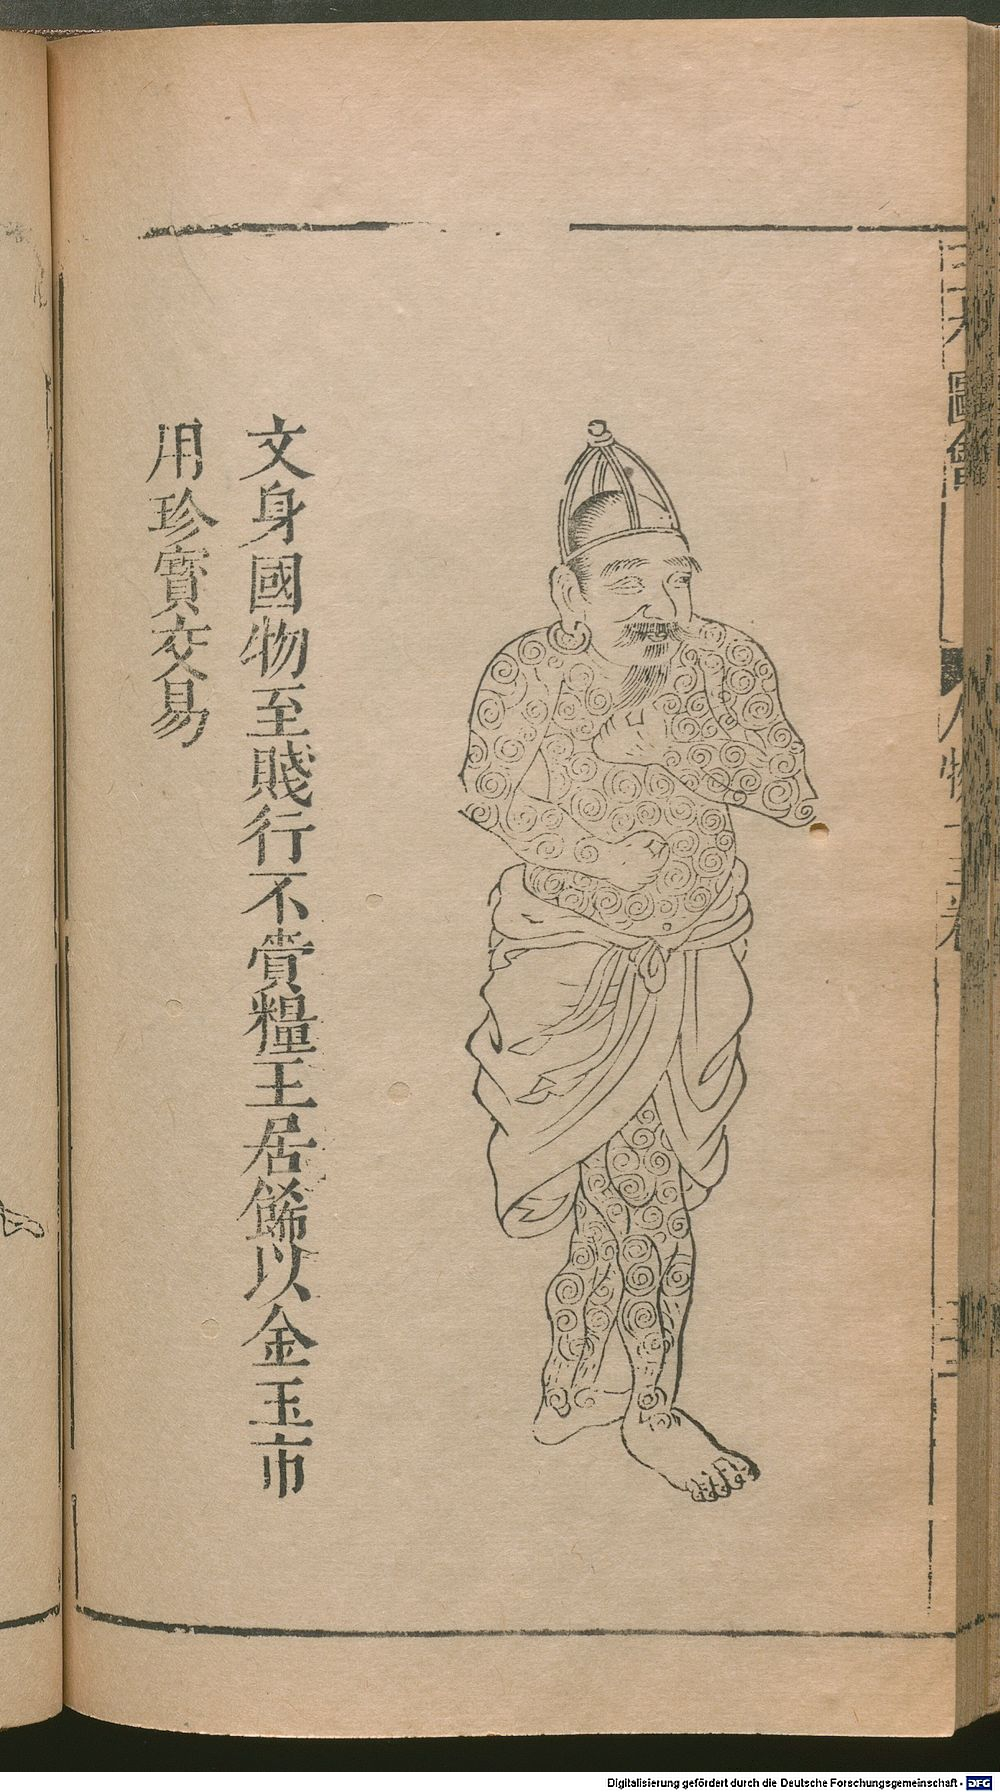 文身國物至賤行不賫糧王居餙以金玉市
用珍寳交易
圖會
人物
Digitalisierung gefördert durch die Deutsche Forschungsgemeinschaft - DFG